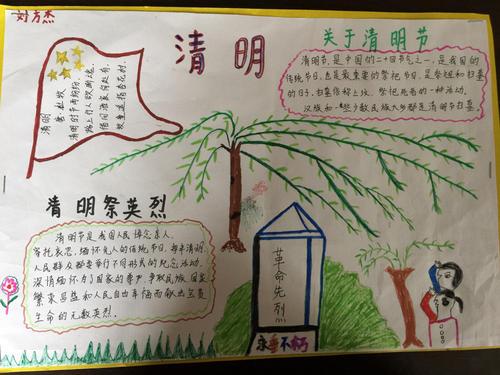 刘方杰
清明
关于清明节
清明节,是中国的二十四节气之一,是我国的
传统节日,也是最重要的祭祀节日,是祭祖和扫墓
的日子,扫墓俗称上坟,祭祀死者的一种活动。
汉族和一些少数民族大多都是清明节扫墓。
清明
唐 杜牧
清明时节雨纷纷,
路上行人欲断魂。
借问酒家何处有,
牧童遥指杏花村。
清明祭英烈
清明节是我国人民悼念亲人、
寄托哀思、缅怀先人的传统节日,每年清明,
人民群众都要举行不同形式的纪念活动,
深情缅怀为了国家的尊严 争取民族 国家
繁荣昌盛和人民自由幸福而献出宝贵
生命的无数英烈。
革命先烈
永垂不朽